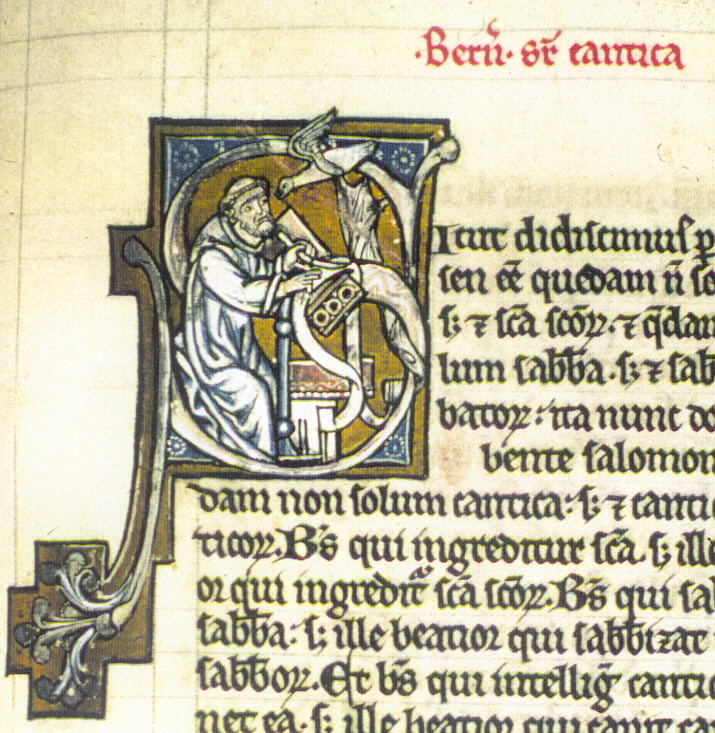 ·Bern̄· sr̄ cantica
Icut didicimus
seri eē quedam n̄
s; ⁊ sc̄a scōꝝ· ⁊ q̄dam
lum sabb̄a· s; ⁊ sab̄
batoꝝ: ita nunc
bente salomon
dam non solum cantica: s; ⁊ cantic
ticoꝝ. B̄s qui ingreditur sc̄a. s; ille
or qui ingredit᷑ sc̄a scōꝝ. B̄s qui
sabb̄a: s; ille beatior qui sabbizat
sabb̄oꝝ. Et b̄s qui intelliḡ cantic
net ea· s; ille beatior qui canit